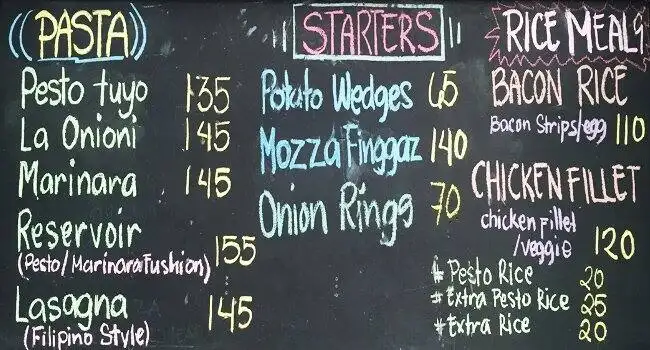 PASTA
Pesto tuyo 135
La Onioni 145
Marinara 145
Reservoir
(Pesto/Marinara Fushion) 155
Lasagna 145
(Filipino Style)
STARTERS
Potato Wedges 65
Mozza Finggaz 140
Onion Rings 70
RICE MEALS
BACON RICE
Bacon Strips/egg 110
CHICKEN FILLET
chicken fillet
/veggie 120
# Pesto Rice 20
# Extra Pesto Rice 25
# Extra Rice 20